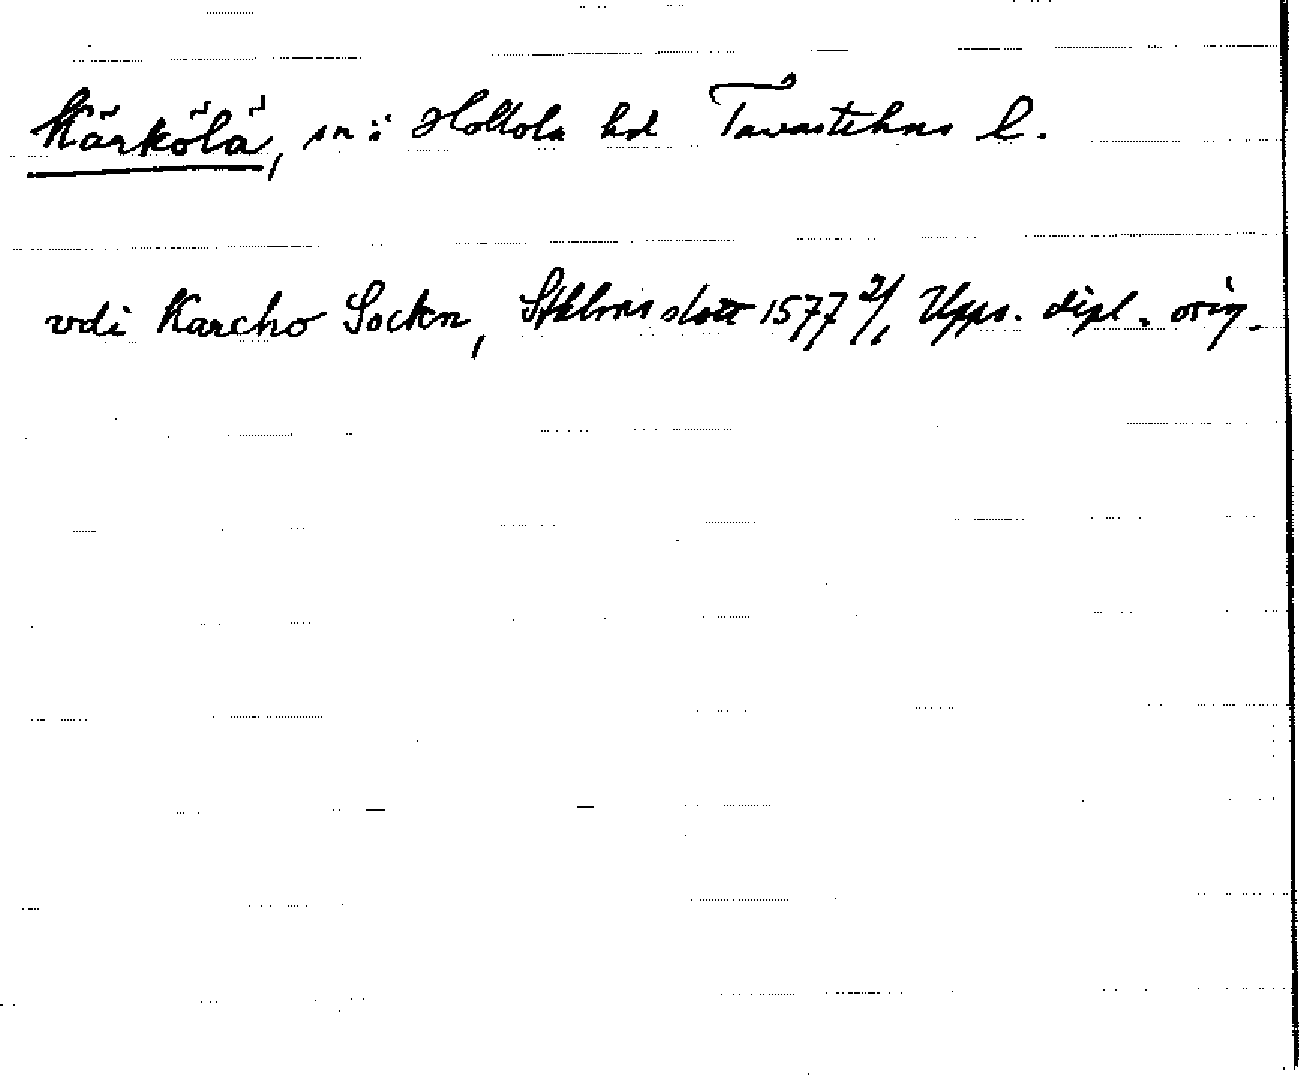 Kärkölä, sn i Hollola hd Tavastehus l.
vdi Karcho Sockn, Sthlms slott 1577 2/1 Upps. dipl. orig.